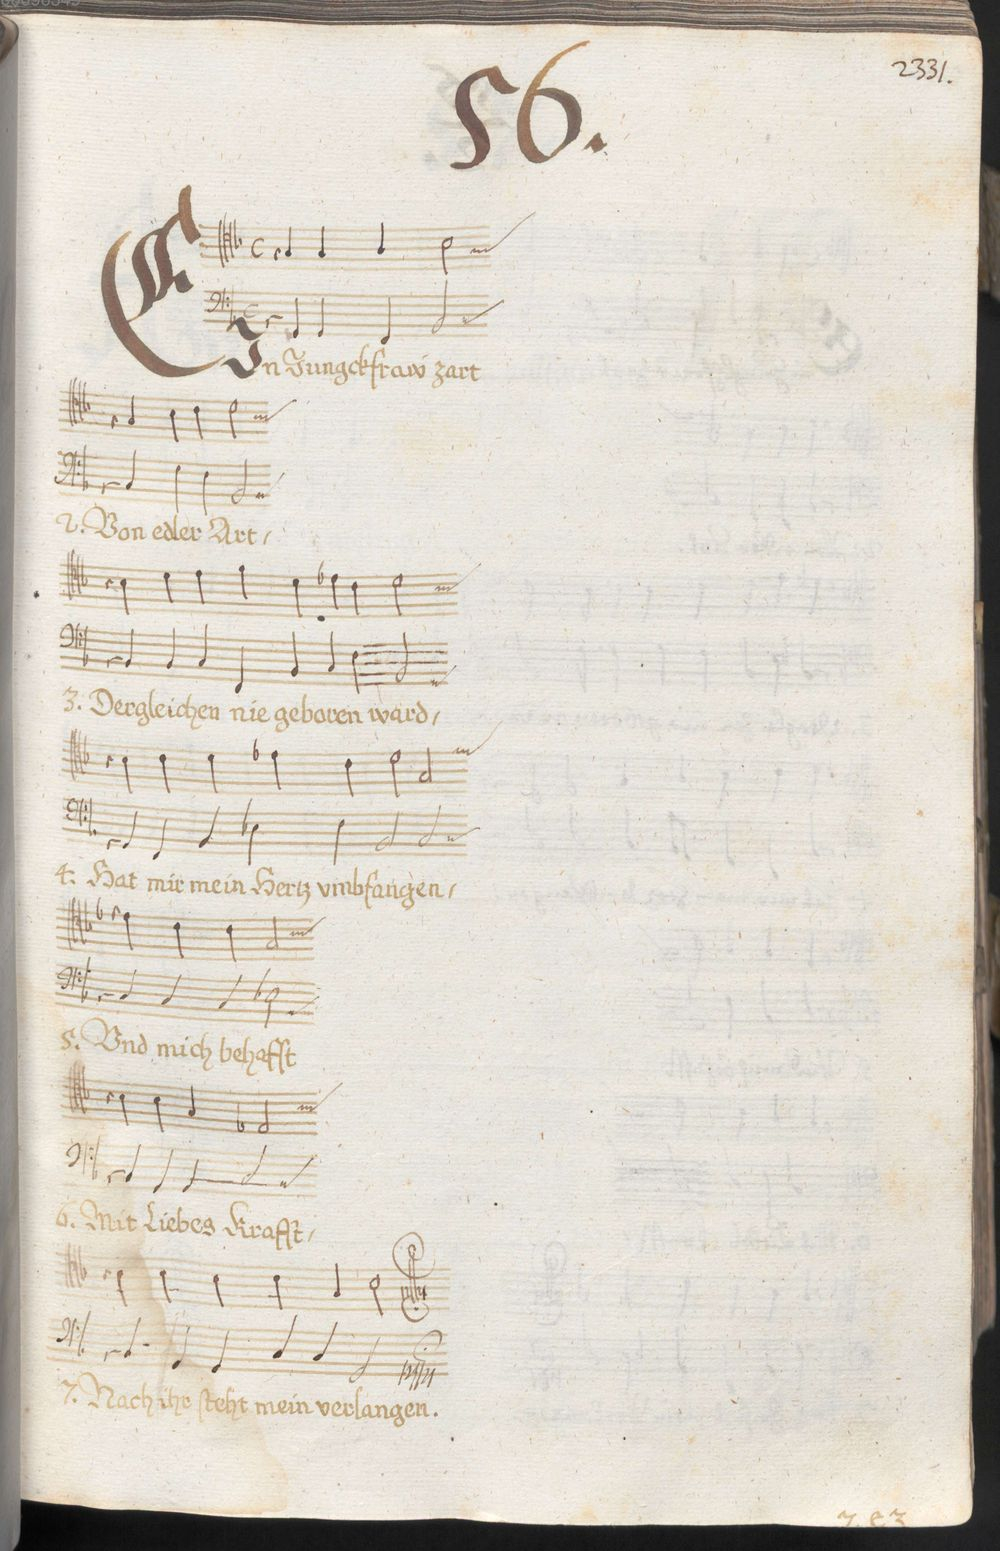 2331.
56.
Ein Jungckfraw zart
2. Von edler Art/
3. Dergleichen nie geboren ward/
4. Hat mir mein Hertz vmbfangen/
5. Vnd mich behafft
6. Mit Liebes Krafft/
7. Nach ihr steht mein verlangen.